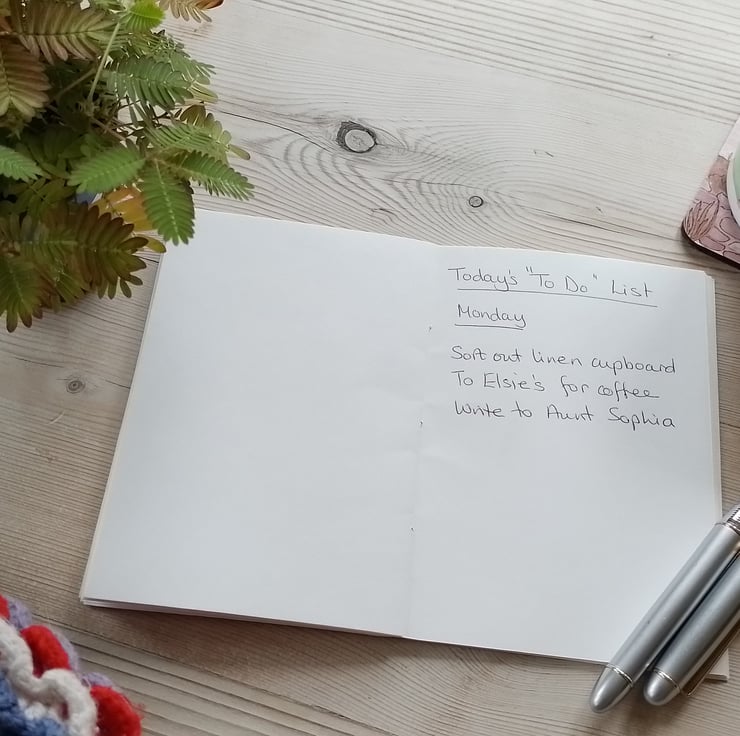 Today's "To Do" List
Monday
Sort out linen cupboard
To Elsie's for coffee
Write to Aunt Sophia